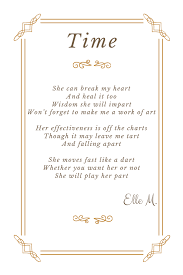 Time
She can break my heart
And heal it too
Wisdom she will impart
Won't forget to make me a work of art
Her effectiveness is off the charts
Though it may leave me tart
And falling apart
She moves fast like a dart
Whether you want her or not
She will play her part
Elle M.